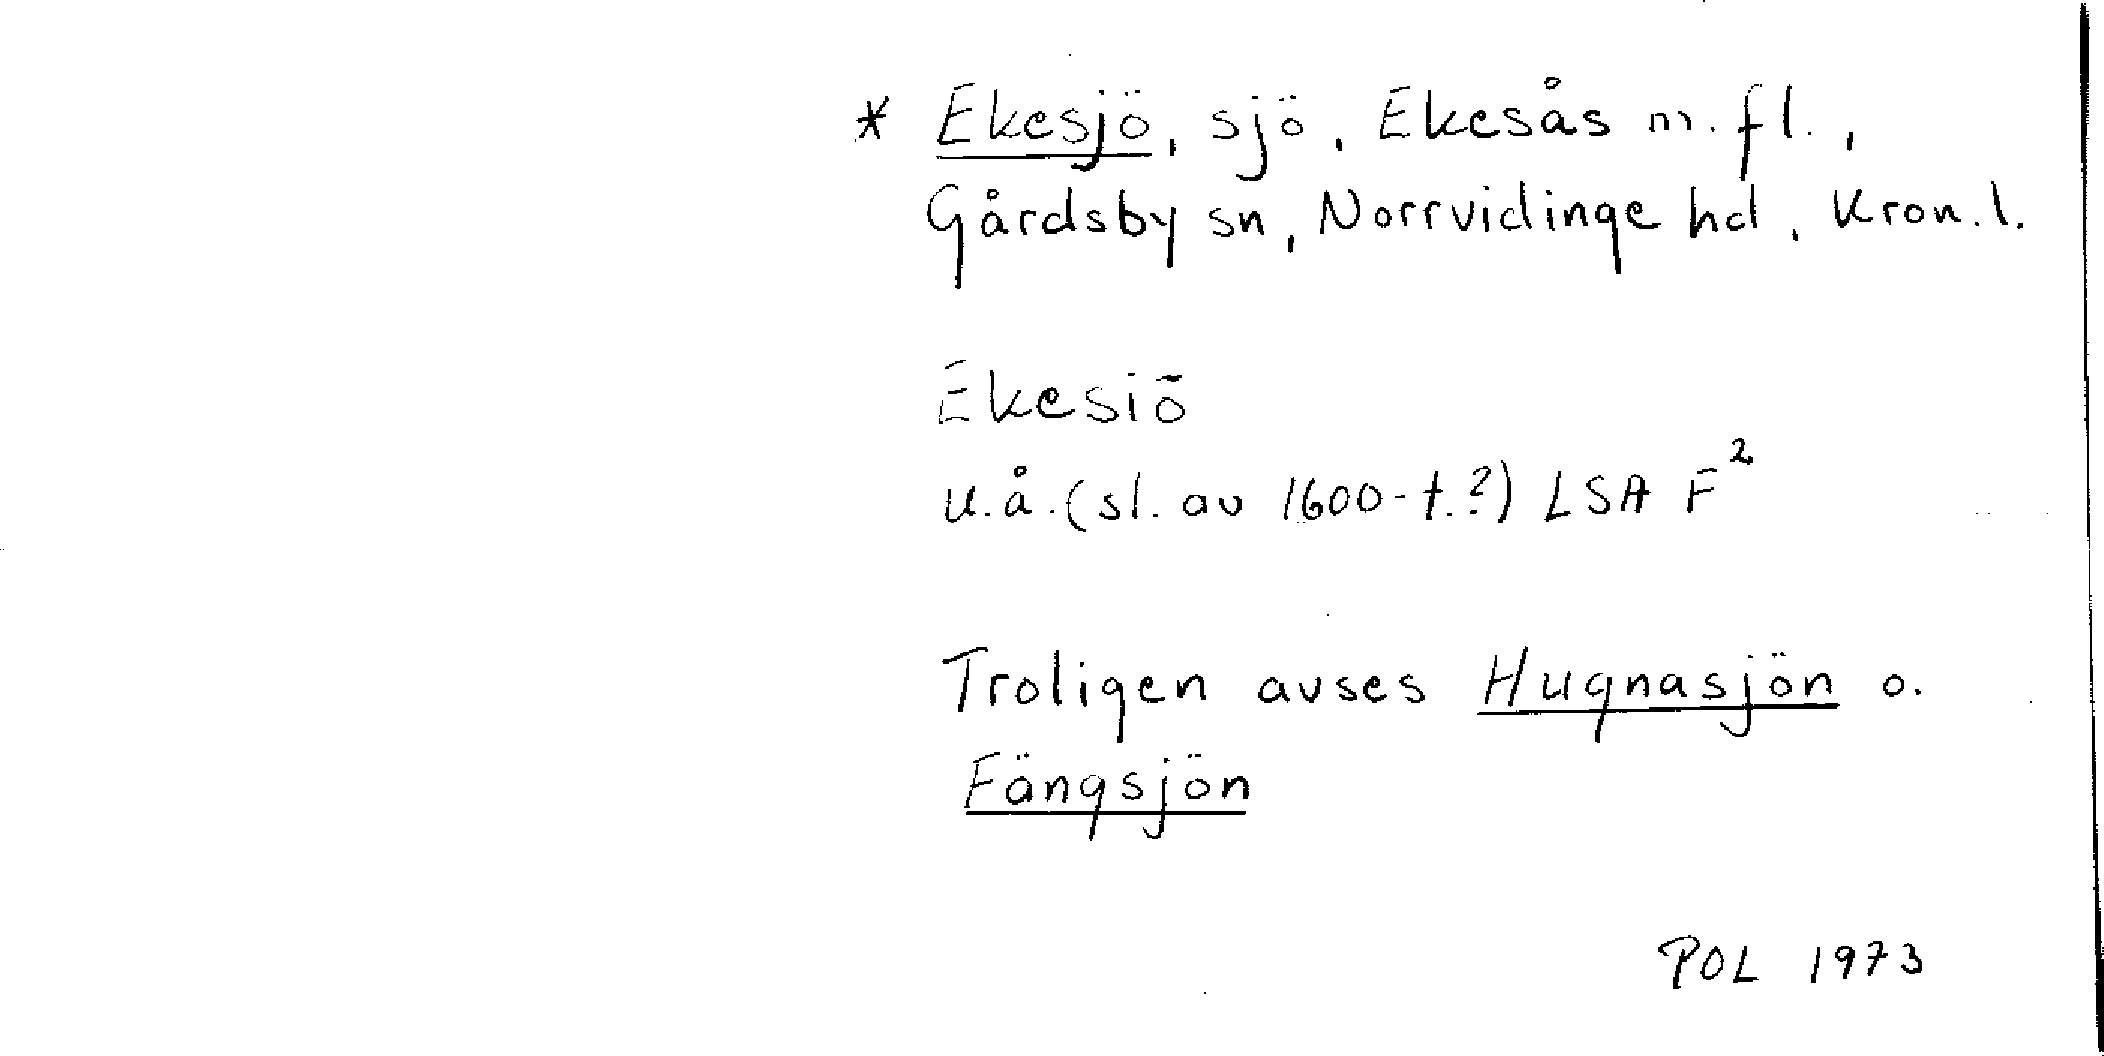 * Ekesjö, sjö, Ekesås m. fl.,
Gårdsby sn, Norrvidinge hd, Kron. l.
Ekesiö
u.å. (sl. av 1600-t.?) LSA F²
Troligen avses Hugnasjön o.
Fängsjön
POL 1973